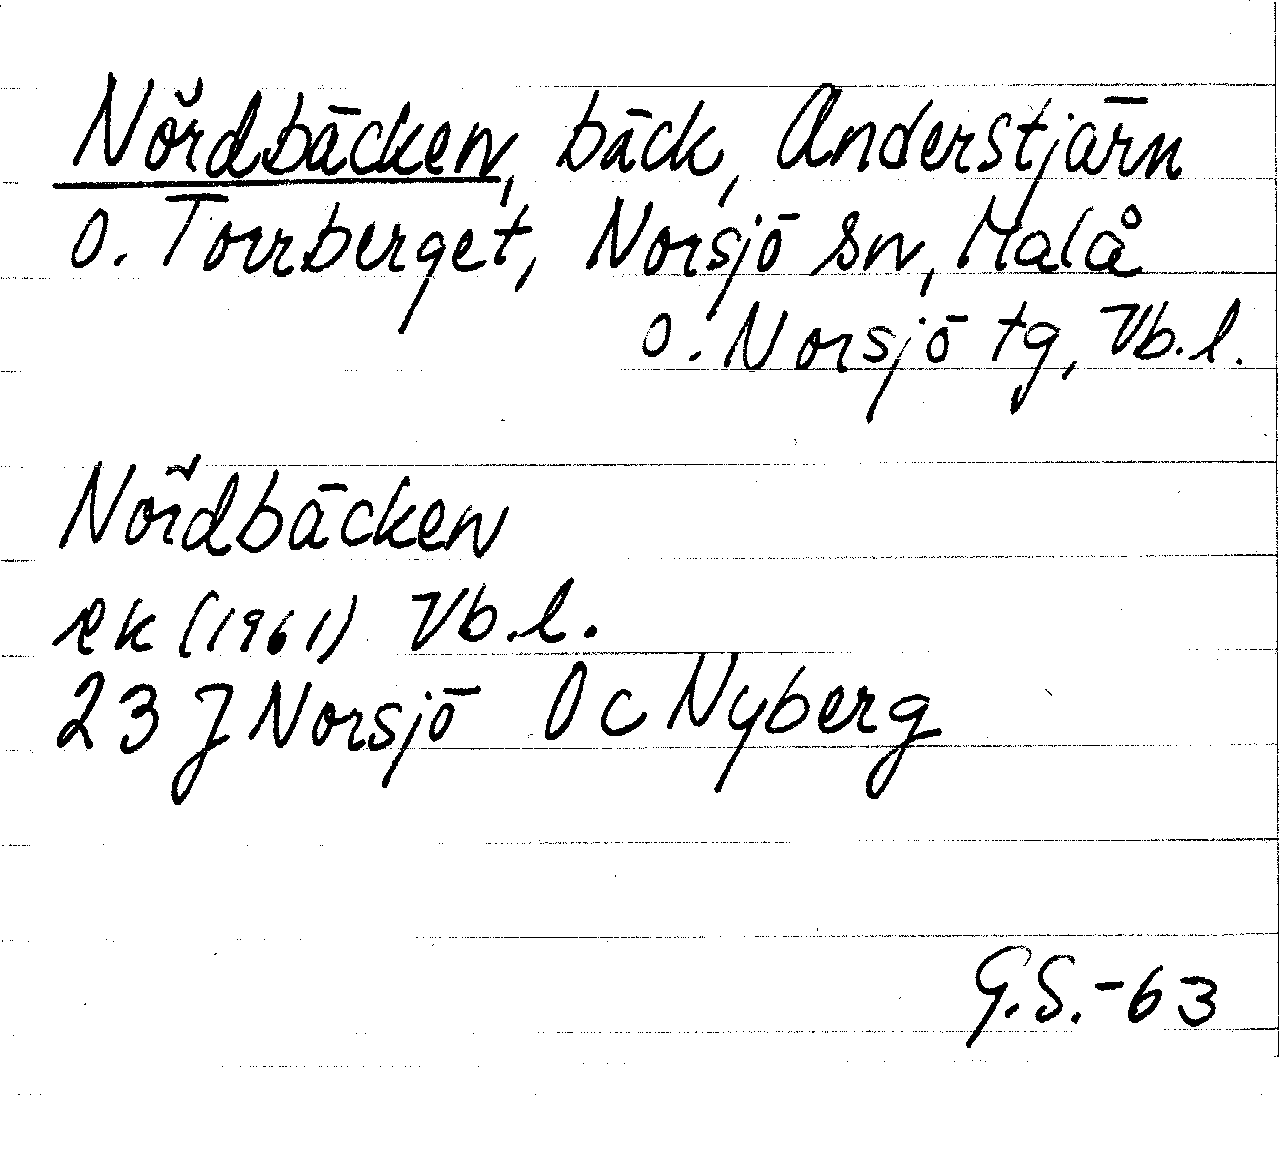 Nordbäcken, bäck, Anderstjärn
o. Torrberget, Norsjö sn, Malå
o. Norsjö tg, Vb.l.
Nordbäcken
rk (1961) Vb.l.
23 J Norsjö 0 c Nyberg
G.S.-63